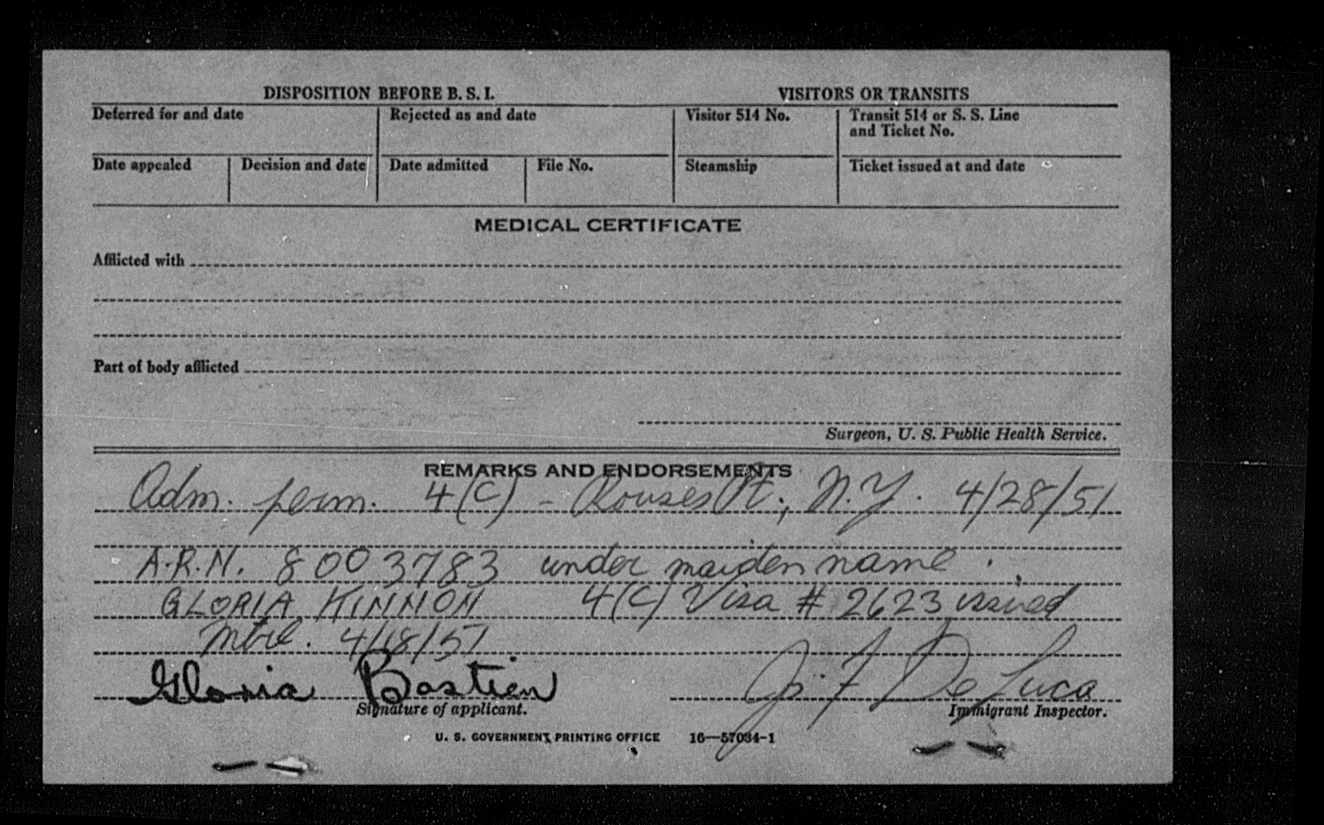 DISPOSITION BEFORE B. S. I. VISITORS OR TRANSITS
Deferred for and date Rejected as and date Visitor 514 No. Transit 514 or S. S. Line
and Ticket No.
Date appealed Decision and date Date admitted File No. Steamship Ticket issued at and date
MEDICAL CERTIFICATE
Afflicted with
Part of body afflicted
Surgeon, U. S. Public Health Service.
REMARKS AND ENDORSEMENTS
Adm. perm. 4(C) - Rouses Pt., N.Y. 4/28/51
A.R.N. 8003783 under maiden name
GLORIA KINNON 4(C) Visa # 2623 issued
Mtrl. 4/18/51
Gloria Bastien J. F. De Luca
Signature of applicant. Immigrant Inspector.
U. S. GOVERNMENT PRINTING OFFICE 16—57034-1